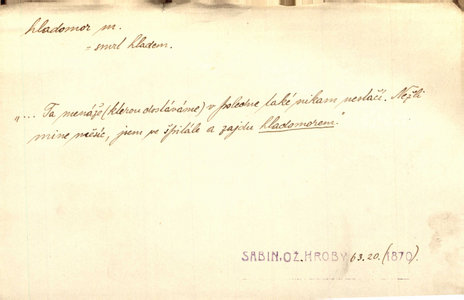 hladomor m.
= smrt hladem.
„... Ta menáž (kterou dostáváme) v poledne také nikam nestačí. Nežli
mine měsíc, jsem ve špitále a zajdu hladomorem."
SABIN, OŽ. HROBY 63.20. (1870).